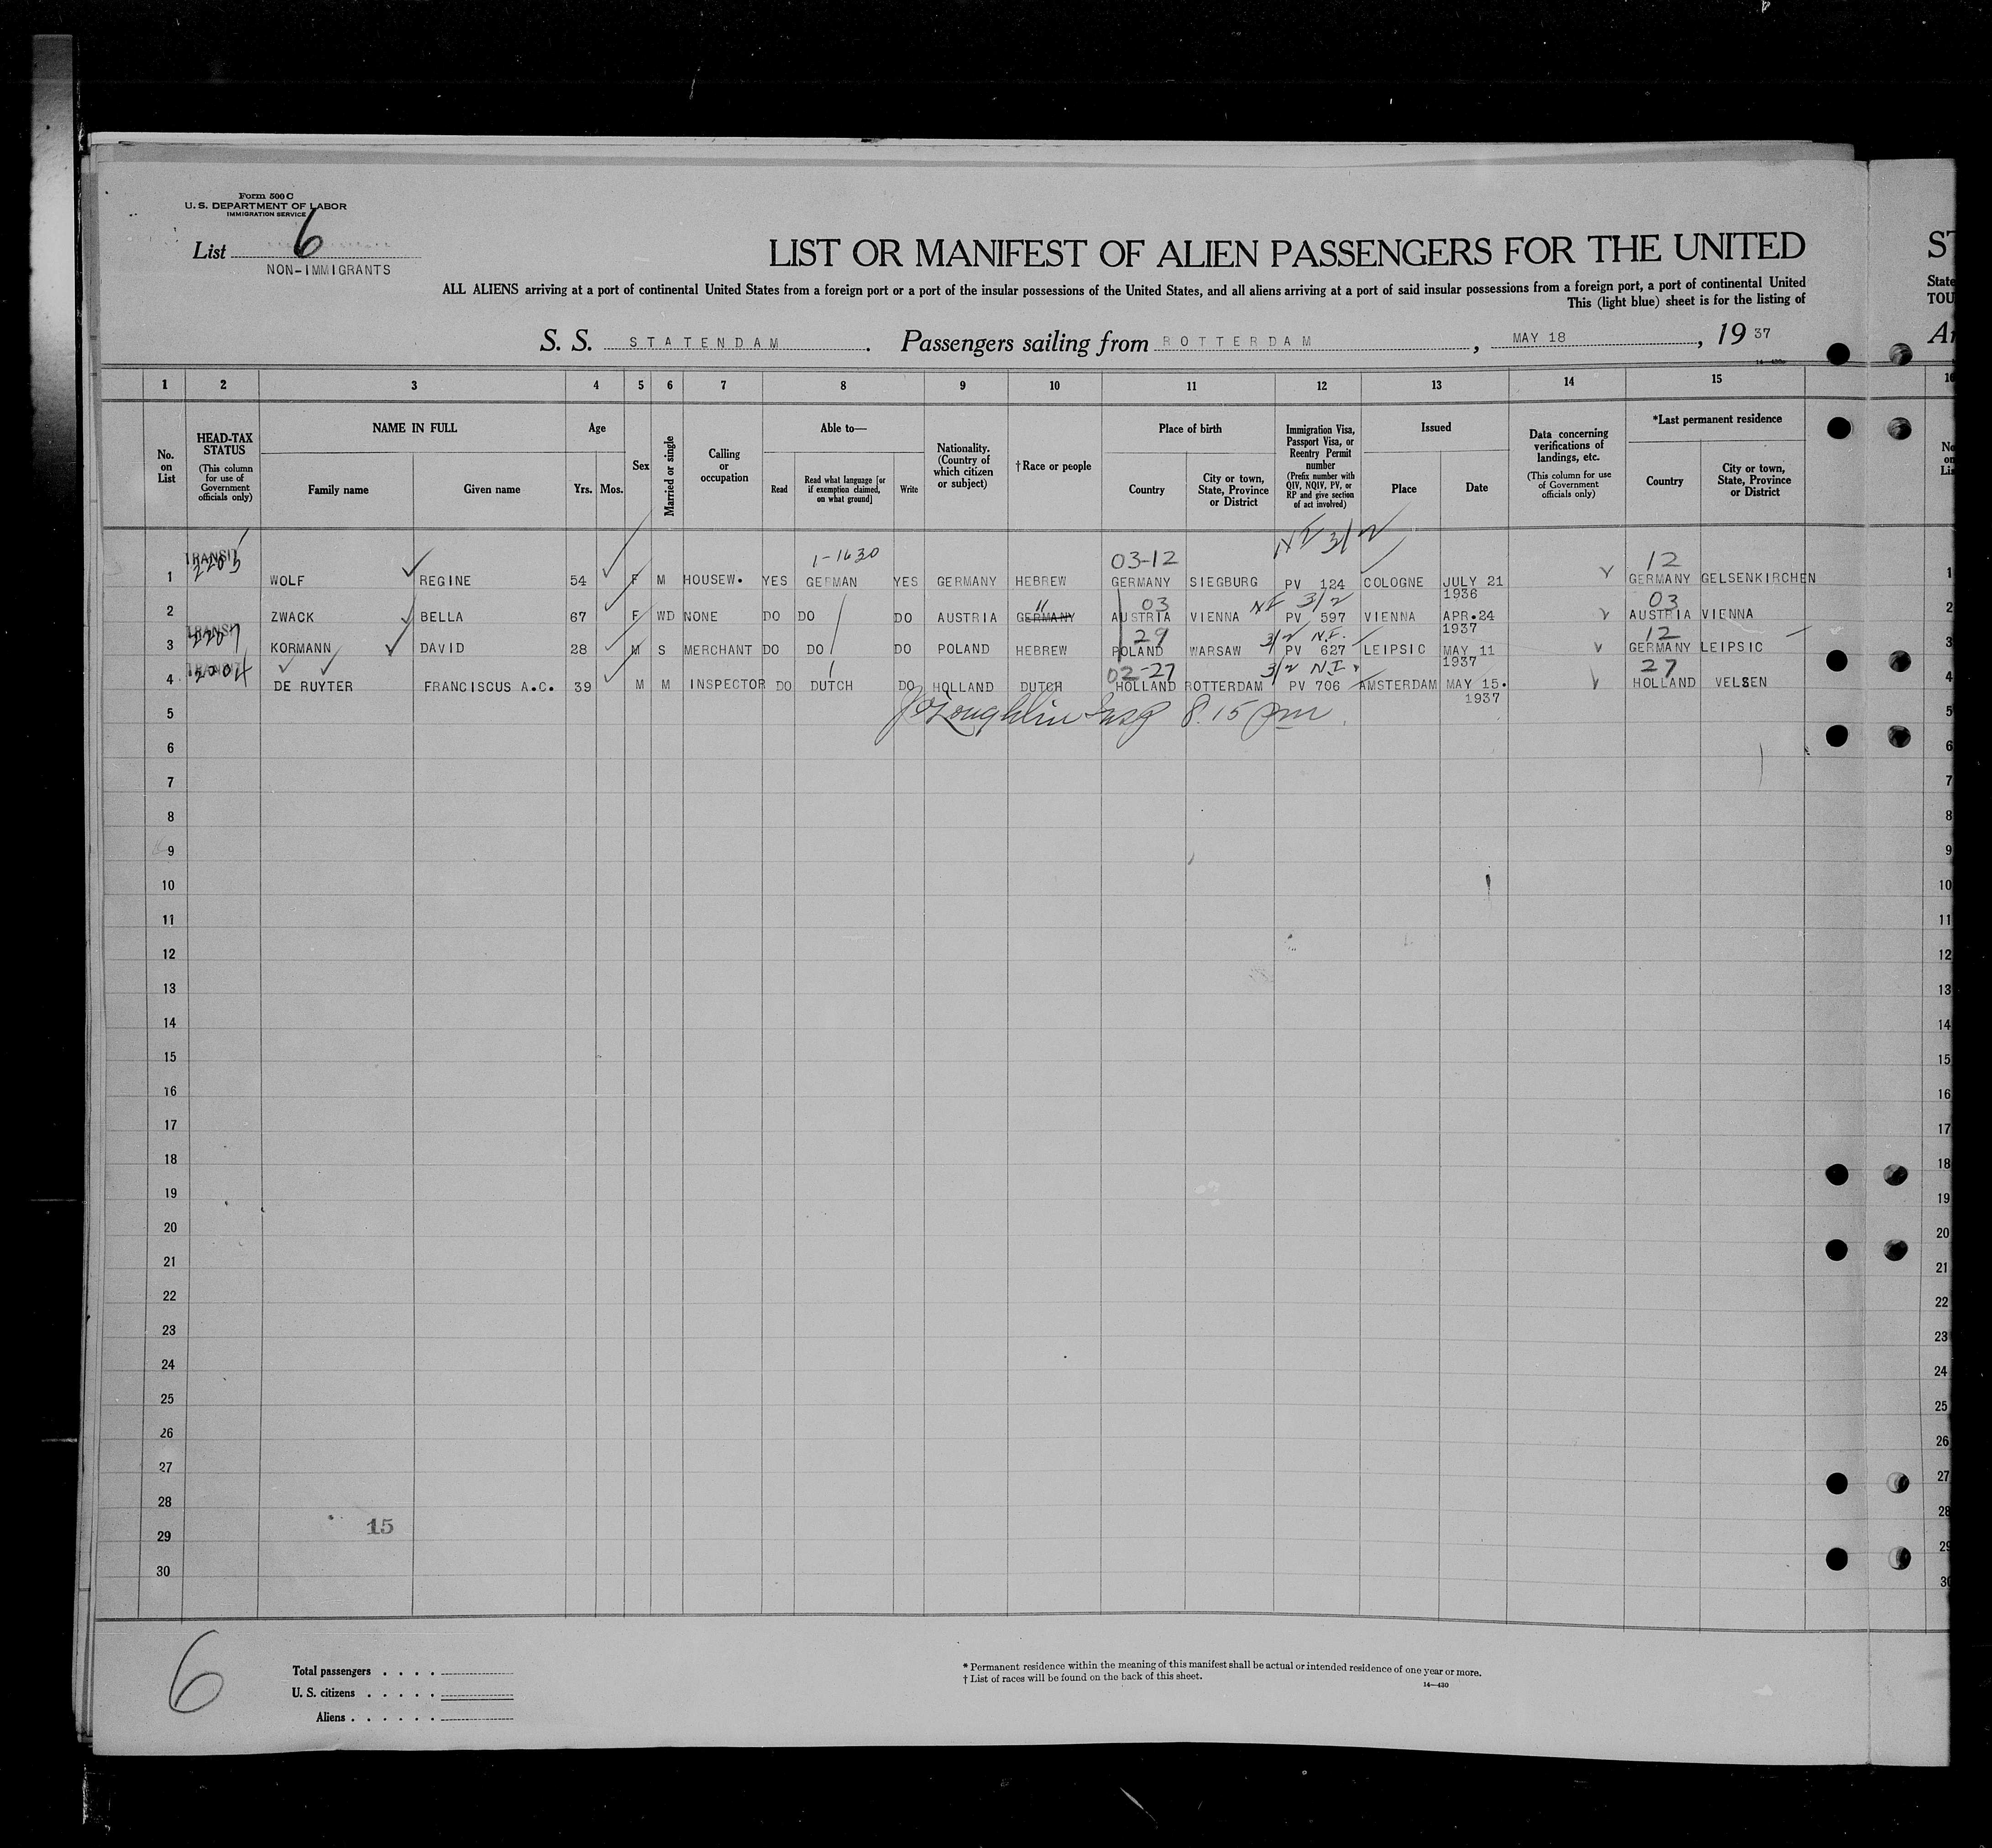 Form 500 C
U. S. DEPARTMENT OF LABOR
IMMIGRATION SERVICE
List 6
NON-IMMIGRANTS
LIST OR MANIFEST OF ALIEN PASSENGERS FOR THE UNITED
ALL ALIENS arriving at a port of continental United States from a foreign port or a port of the insular possessions of the United States, and all aliens arriving at a port of said insular possessions from a foreign port, a port of continental United
This (light blue) sheet is for the listing of
S. S. STATENDAM. Passengers sailing from ROTTERDAM, MAY 18, 19 37
14-430
1 2 3 4 5 6 7 8 9 10 11 12 13 14 15
No. on List
HEAD-TAX STATUS
(This column for use of Government officials only)
NAME IN FULL
Family name Given name
Age
Yrs. Mos.
Sex
Married or single
Calling or occupation
Able to—
Read
Read what language [or if exemption claimed, on what ground]
Write
Nationality. (Country of which citizen or subject)
† Race or people
Place of birth
Country
City or town, State, Province or District
Immigration Visa, Passport Visa, or Reentry Permit number
(Prefix number with QIV, NQIV, PV, or RP and give section of act involved)
Issued
Place Date
Data concerning verifications of landings, etc.
(This column for use of Government officials only)
*Last permanent residence
Country
City or town, State, Province or District
TRANSIT 1-1630 03-12 3/2 12
1 WOLF REGINE 54 F M HOUSEW. YES GERMAN YES GERMANY HEBREW GERMANY SIEGBURG PV 124 COLOGNE JULY 21 1936 GERMANY GELSENKIRCHEN 1
" 03 3/2 03
2 ZWACK BELLA 67 F WD NONE DO DO DO AUSTRIA GERMANY AUSTRIA VIENNA PV 597 VIENNA APR.24 1937 AUSTRIA VIENNA 2
TRANSIT 29 3/2 12
3 KORMANN DAVID 28 M S MERCHANT DO DO DO POLAND HEBREW POLAND WARSAW PV 627 LEIPSIC MAY 11 1937 GERMANY LEIPSIC 3
TRANSIT 2204 02-27 3/2 N.I. 27
4 DE RUYTER FRANCISCUS A.C. 39 M M INSPECTOR DO DUTCH DO HOLLAND DUTCH HOLLAND ROTTERDAM PV 706 AMSTERDAM MAY 15. 1937 HOLLAND VELSEN 4
5 J O'Loughlin Insp 8.15 pm 5
6 6
7 7
8 8
9 9
10 10
11 11
12 12
13 13
14 14
15 15
16 16
17 17
18 18
19 19
20 20
21 21
22 22
23 23
24 24
25 25
26 26
27 27
28 28
15
29 29
30 30
6
Total passengers . . . .
U. S. citizens . . . . .
Aliens . . . . . .
* Permanent residence within the meaning of this manifest shall be actual or intended residence of one year or more.
† List of races will be found on the back of this sheet.
14—430